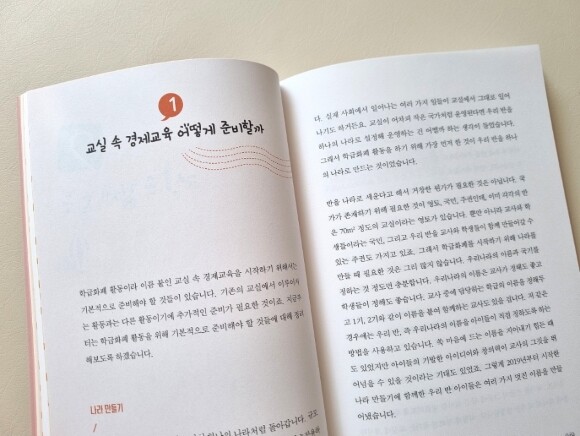 1
교실 속 경제교육 어떻게 준비할까
학급화폐 활동이라 이름 붙인 교실 속 경제교육을 시작하기 위해서는
기본적으로 준비해야 할 것들이 있습니다. 기존의 교실에서 이루어지
는 활동과는 다른 활동이기에 추가적인 준비가 필요한 것이죠. 지금부
터는 학급화폐 활동을 위해 기본적으로 준비해야 할 것들에 대해 정리
해보도록 하겠습니다.
나라 만들기
하나의 나라처럼 돌아갑니다. 규모
다. 실제 사회에서 일어나는 여러 가지 일들이 교실에서 그대로 일어
나기도 하거든요. 교실이 어차피 작은 국가처럼 운영된다면 우리 반을
하나의 나라로 설정해 운영하는 건 어떨까 하는 생각이 들었습니다.
그래서 학급화폐 활동을 하기 위해 가장 먼저 한 것이 우리 반을 하나
의 나라로 만드는 것이었습니다.
반을 나라로 세운다고 해서 거창한 뭔가가 필요한 것은 아닙니다. 국
가가 존재하기 위해 필요한 것이 영토, 국민, 주권인데, 이미 각각의 반
은 70m² 정도의 교실이라는 영토가 있습니다. 뿐만 아니라 교사와 학
생들이라는 국민, 그리고 우리 반을 교사와 학생들이 함께 만들어갈 수
있는 주권도 가지고 있죠. 그래서 학급화폐를 시작하기 위해 나라를
만들 때 필요한 것은 그리 많지 않습니다. 우리나라의 이름과 국기를
정하는 것 정도면 충분합니다. 우리나라의 이름은 교사가 정해도 좋고
학생들이 정해도 좋습니다. 교사 중에 담당하는 학급의 이름을 정해놓
고 1기, 2기와 같이 이름을 붙여 함께하는 교사도 있을 겁니다. 저 같은
경우에는 우리 반, 즉 우리나라의 이름을 아이들이 직접 정하도록 하는
방법을 사용하고 있습니다. 쏙 마음에 드는 이름을 지어내기 힘든 때
도 있었지만 아이들의 기발한 아이디어와 창의력이 교사의 그것을 뛰
어넘을 수 있을 것이라는 기대도 있었죠. 그렇게 2019년부터 시작한
나라 만들기에 함께한 우리 반 아이들은 여러 가지 멋진 이름을 만들
어냈습니다.